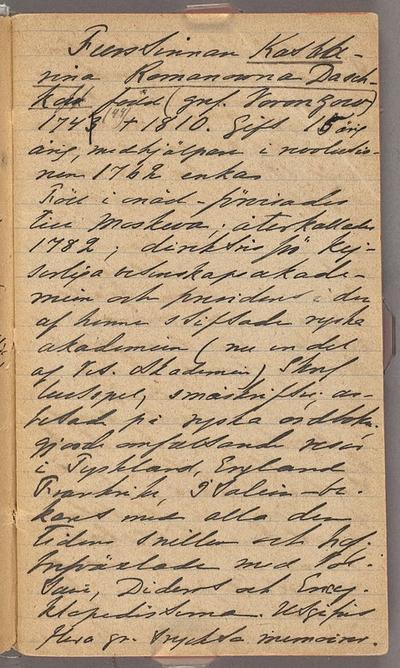 Furstinnan Katha-
rina Romanowna Dasch-
kow född (gref. Voronzow)
1743 (44) † 1810. Gift 15 årig
årig, medhjälpare i revolutio-
nen 1762 enka
Föll i onåd - förvisades
till Moskwa; återkallades
1782; direktris på kej-
serliga vetenskapsakade-
mien och president i den
af henne stiftade ryska
akademien (nu en del
af Vet. Akademien) Skref
lustspel, småskrifter, ar-
betade på ryska ordboken
gjorde omfattande resor
i Tyskland, England
Frankrike, Italien - be-
kant med alla den
tidens snillen och
brefväxlade med Vol-
taire, Diderot och Ency-
klopedisterna. Utgifvit
flera gr. tryckta memoirer.